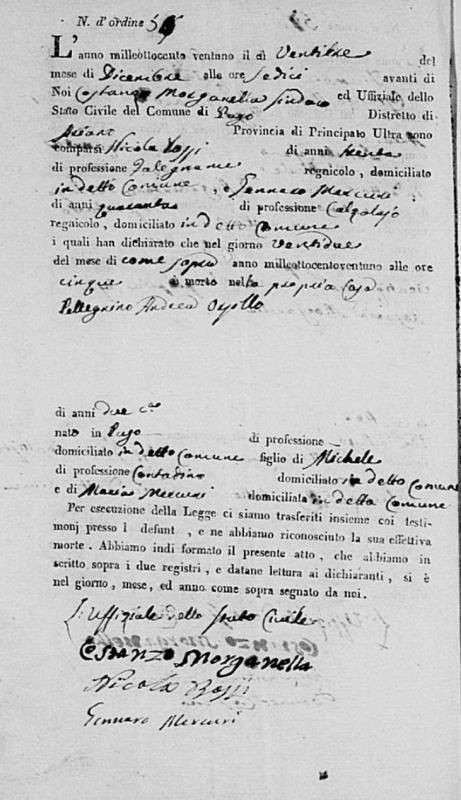 N. d'ordine
L'anno milleottocento ventuno il dì Ventitre del
mese di Dicembre alle ore sedici avanti di
Noi Costanzo Morganella Sindaco ed Uffiziale dello
Stato Civile del Comune di Pago Distretto di
Provincia di Principato Ultra sono
comparsi Nicola Rossi di anni trenta
di professione Falegname regnicolo, domiciliato
in detto Comune, e Gennaro Mercuri
di anni quaranta di professione Calzolajo
regnicolo, domiciliato in detto Comune
i quali han dichiarato che nel giorno Ventidue
del mese di come sopra anno milleottocentoventuno alle ore
cinque è morto nella propria Casa
Pellegrino Andrea
di anni due
nato in Pago di professione
domiciliato in detto Comune figlio di Michele
di professione Contadino domiciliato in detto Comune
e di Maria Mercuri domiciliata in detto Comune
Per esecuzione della Legge ci siamo trasferiti insieme coi testi-
monj presso l defunt , e ne abbiamo riconosciuto la sua effettiva
morte. Abbiamo indi formato il presente atto, che abbiamo in-
scritto sopra i due registri, e datane lettura ai dichiaranti, si è
nel giorno, mese, ed anno come sopra segnato da noi.
L'Uffiziale dello Stato Civile
Costanzo Morganella
Nicola Rossi
Gennaro Mercuri